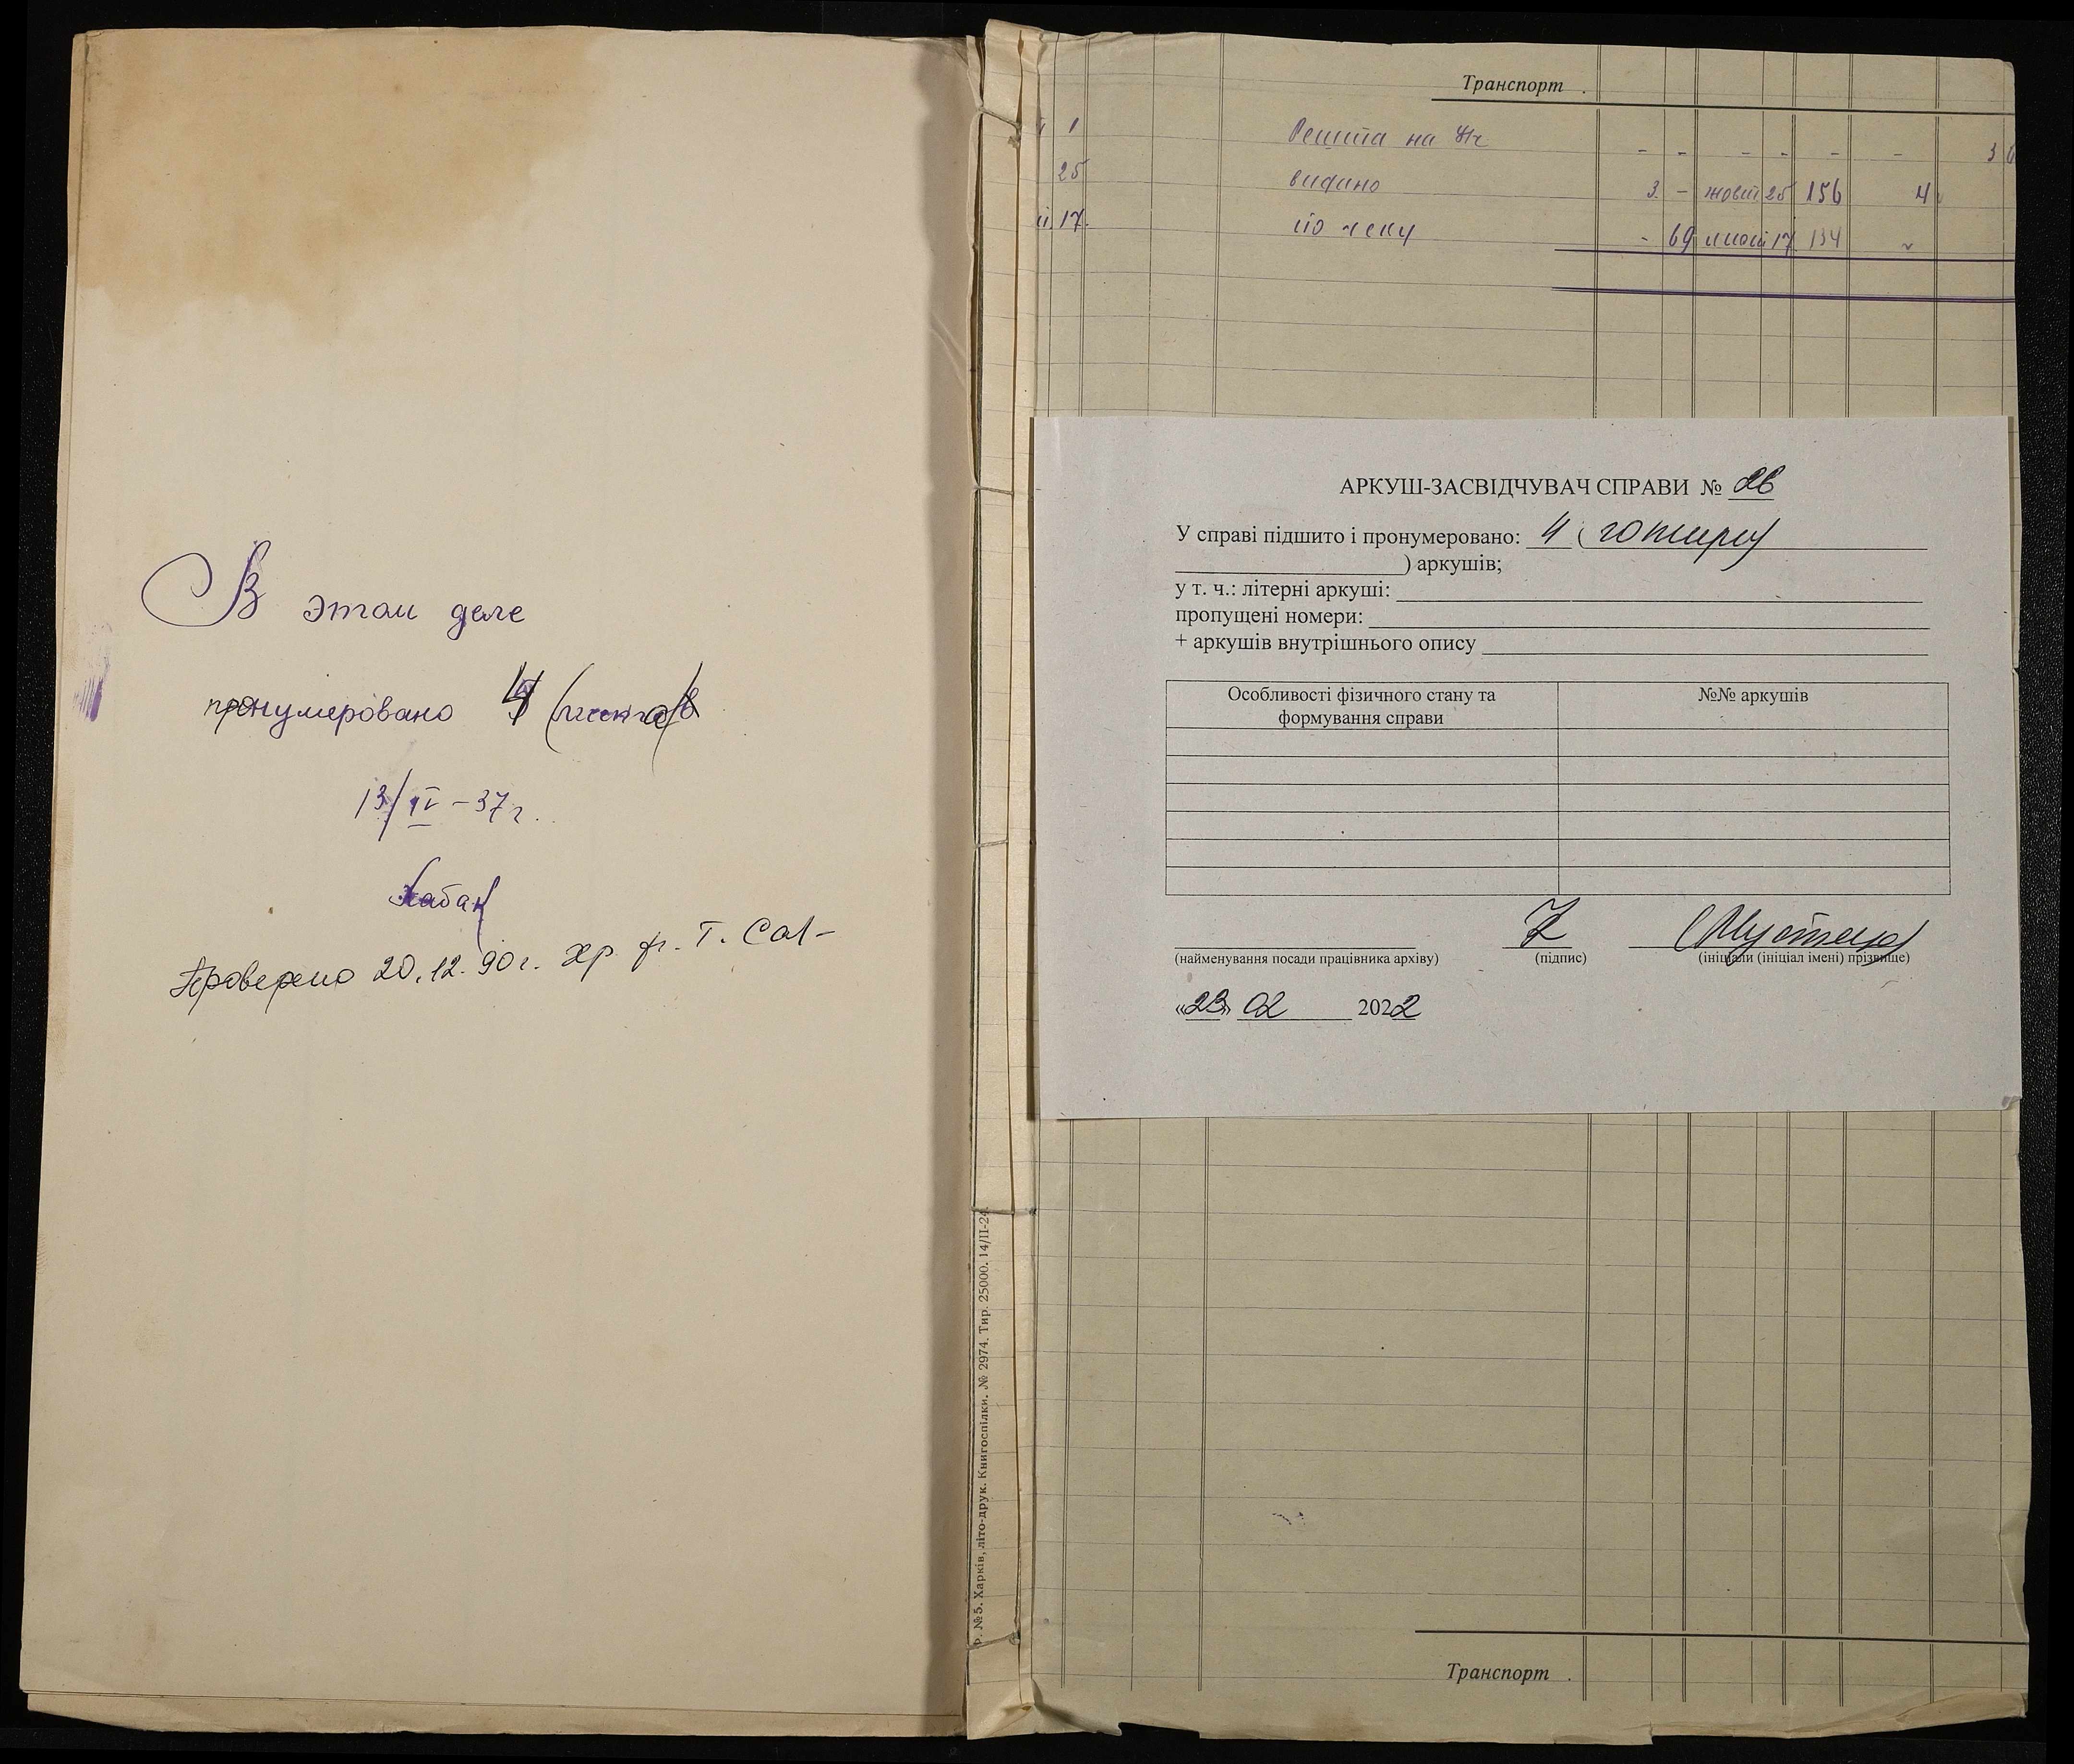 В этом деле
пронумеровано 4 (листов)
13/IV – 37 г.
Хабак
Проверено 20.12.90г. хр. ф. Т.
Транспорт .
1 Решта на - - - - - - 3
25 видано 3. - жовт 25 156 4
17. по чеку - 69 лют 17. 134
АРКУШ-ЗАСВІДЧУВАЧ СПРАВИ № 26
У справі підшито і пронумеровано: 4 ( чотири
) аркушів;
у т. ч.: літерні аркуші:
пропущені номери:
+ аркушів внутрішнього опису
Особливості фізичного стану та формування справи
№№ аркушів
(найменування посади працівника архіву) (підпис) (ініціали (ініціал імені) прізвище)
«23» 02 2022
Ф. №5. Харків, літо-друк. Книгоспілки. № 2974. Тир. 25000. 14/II-24.
Транспорт .